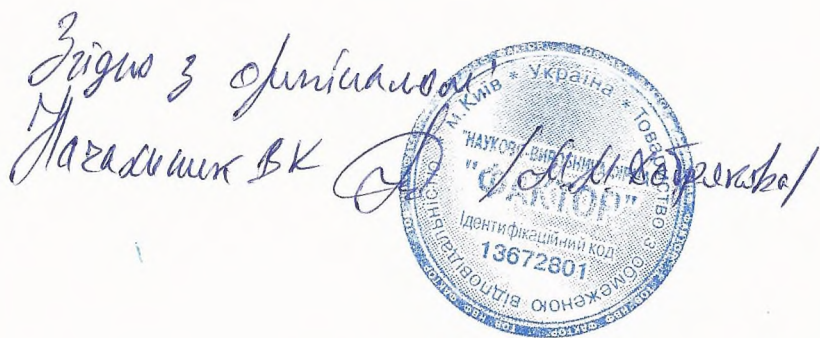 Згідно з оригіналом
Начальник ВК
м.Київ * Україна * Товариство з обмеженою відповідальністю
"НАУКОВО-ВИРОБНИЧА ФІРМА
"ФАКТОР"
Ідентифікаційний код
13672801